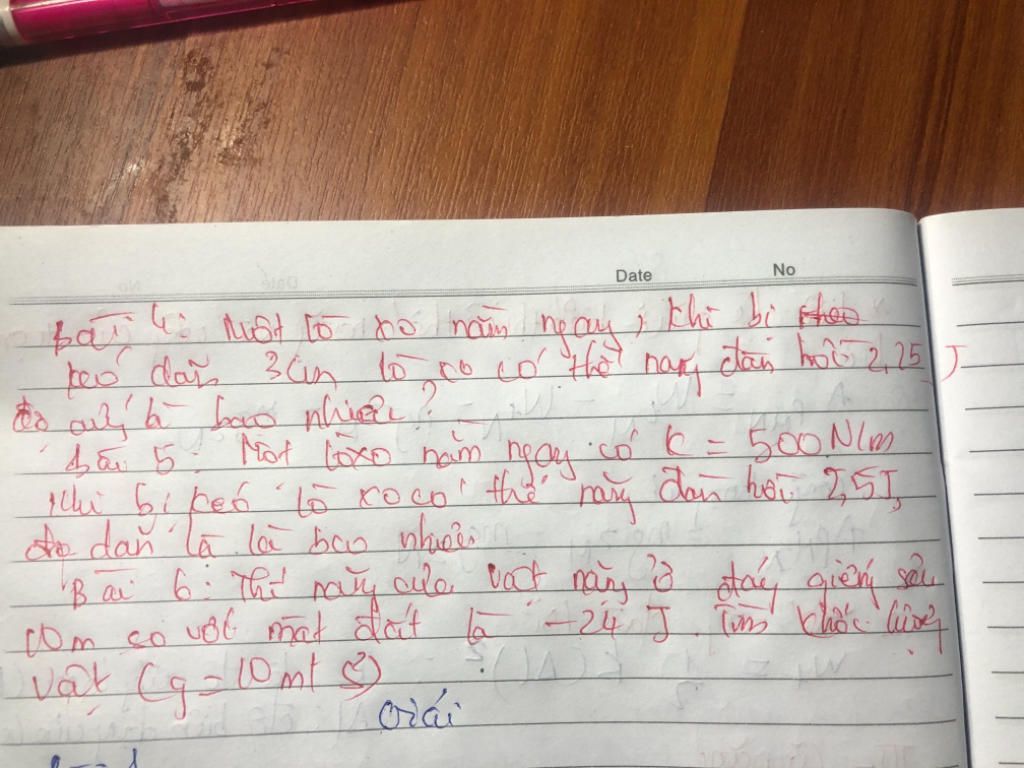 Date No
Bài 4: Một lò xo nằm ngay, khi bị
keó dãn 3cm lò xo có thế năng đàn hồi 2,25 J
độ cứng là bao nhiêu?
Bài 5: Một lò xo nằm ngay có k = 500 N/m
Khi bị keó lò xo có thế năng đàn hồi 2,5J,
độ dãn là là bao nhiêu
Bài 6: Thế năng của vật nặng ở đáy giếng sâu
10m so với mặt đất là -24 J. Tìm khối lượng
vật (g = 10 m/s²)
Giải